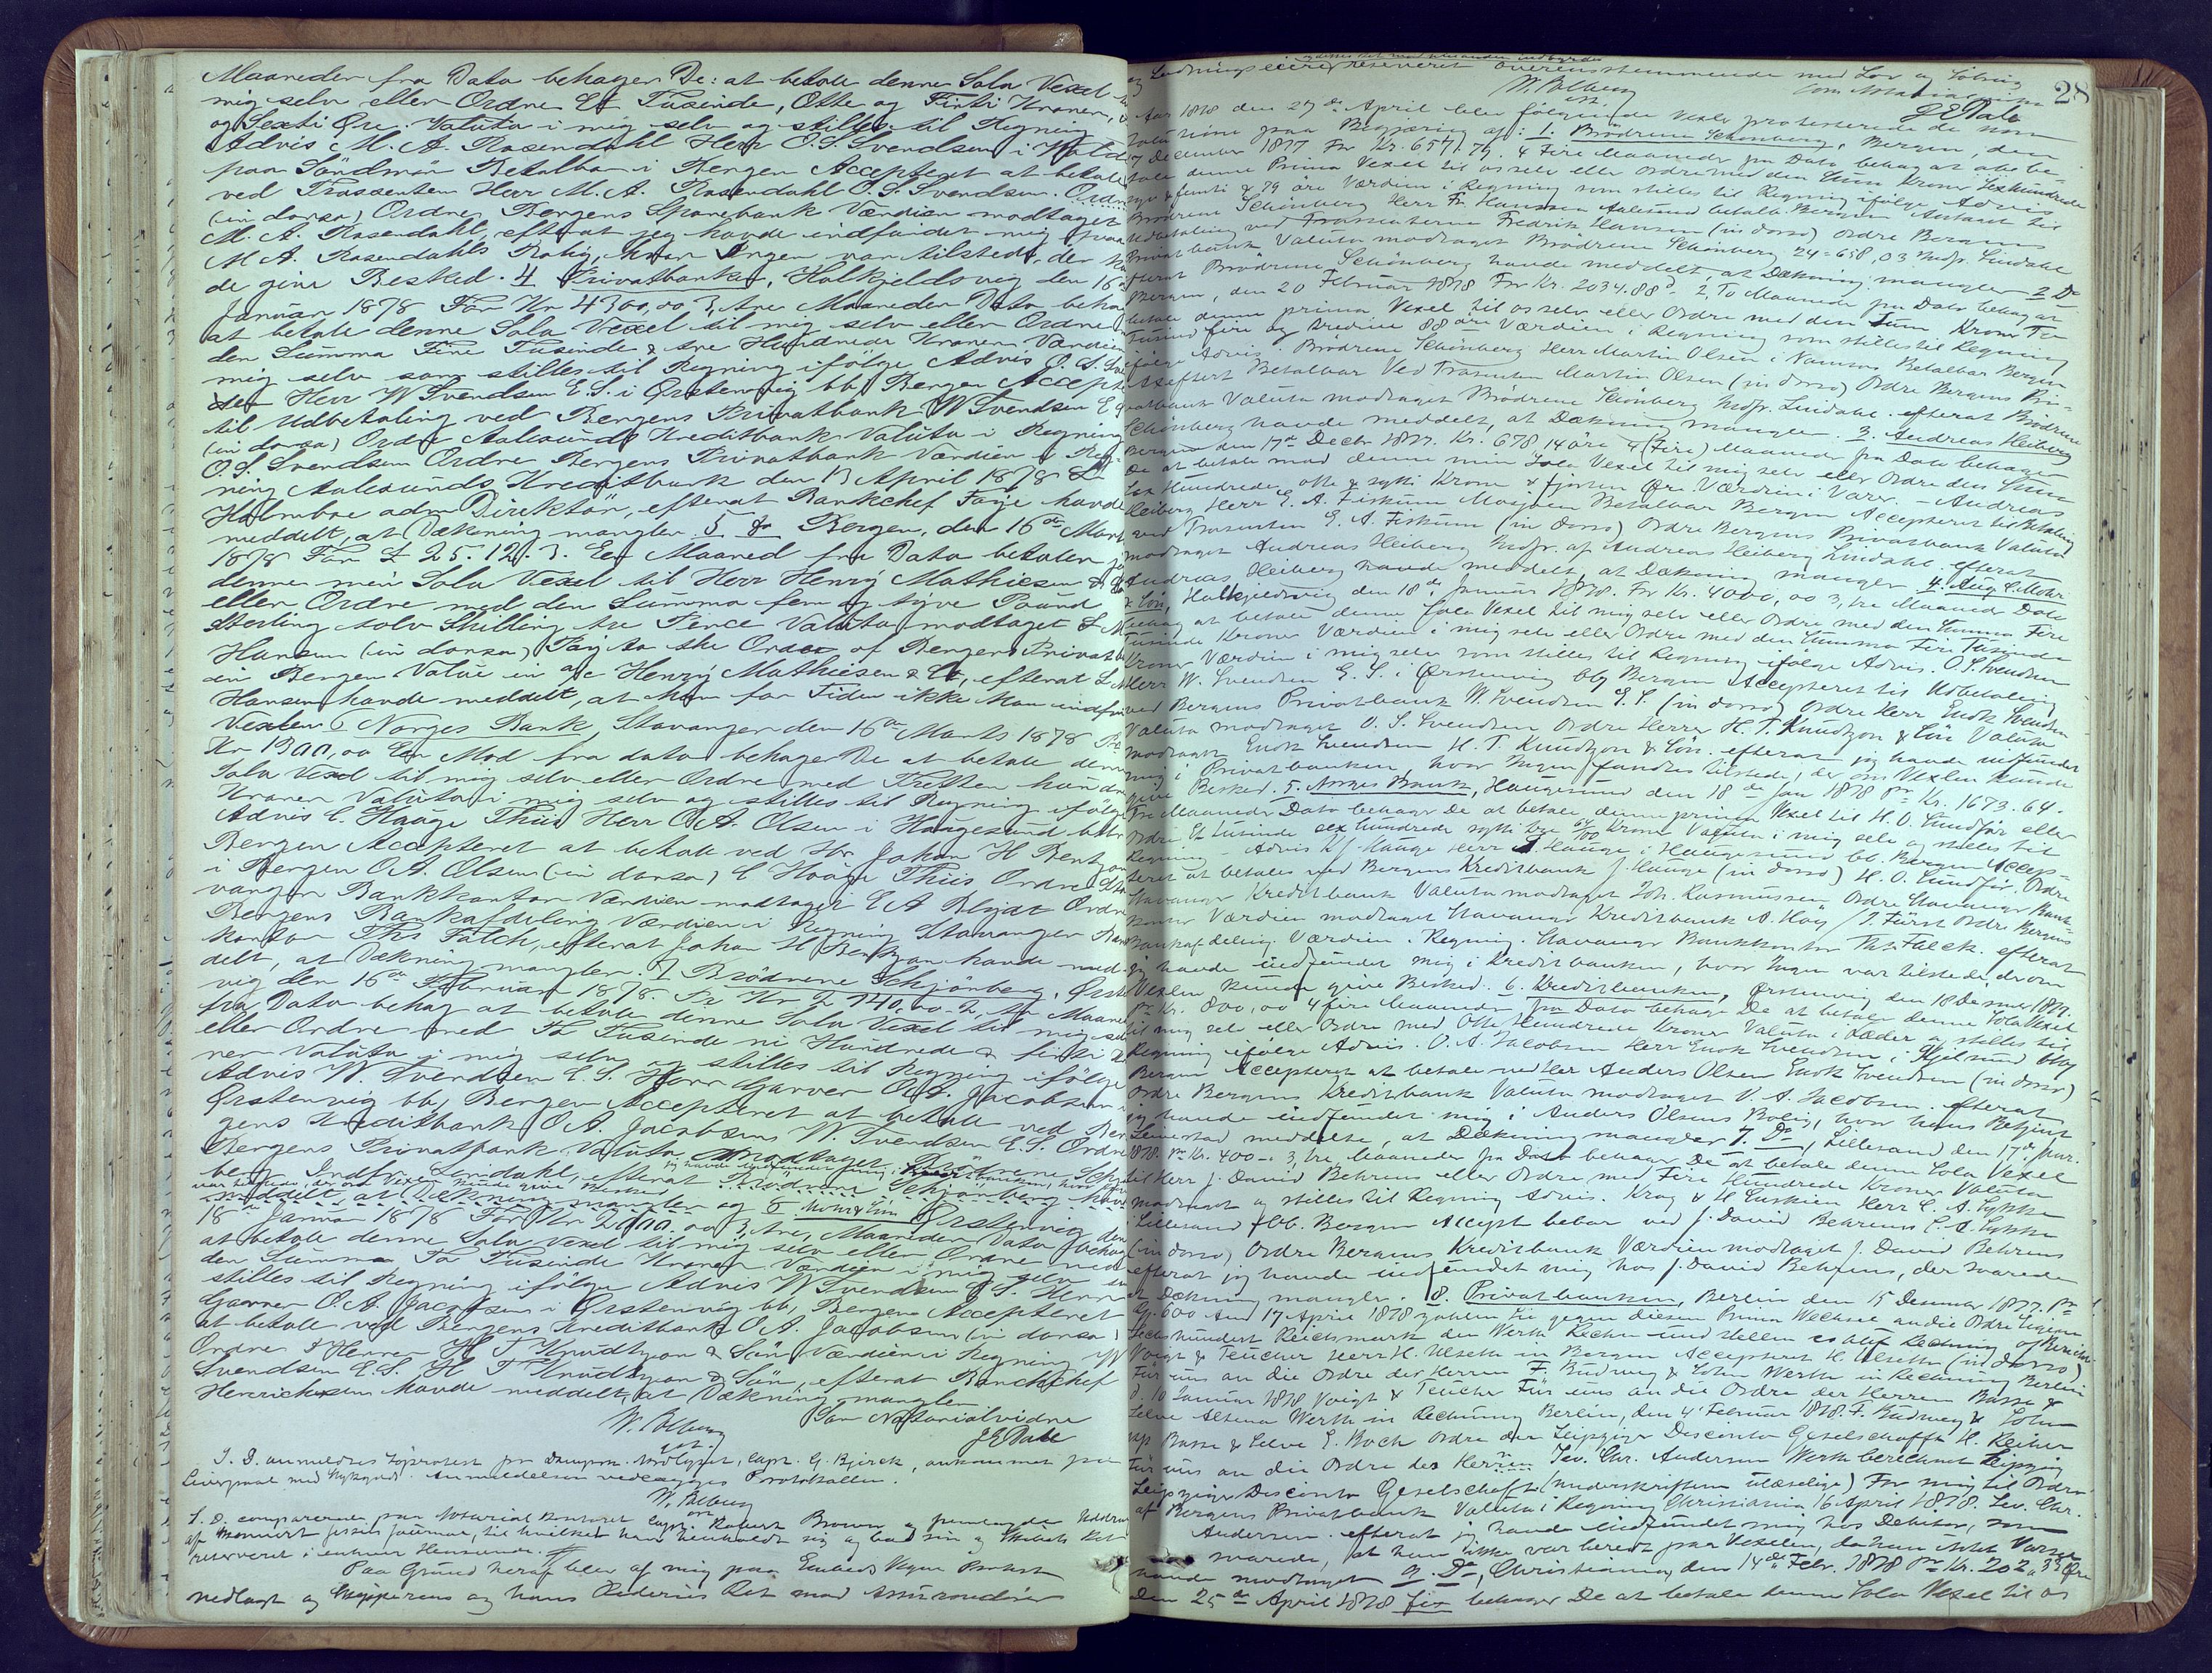 Maaneder fra Dato behager De at betale denne Sola Vexel
mig selv eller Ordre Et Tusinde, Otte og Firti Kroner,
og Sexti Øre. Valuta i mig selv og stilles til Regning
Advis M. A. Rosendahl Herr O. S. Svendsen i
paa Söndmör Betalbar i Bergen Accepteret at betale
ved Trassenten Herr M. A. Rosendahl O. S. Svendsen.
(in dorso) Ordre Bergens Sparebank Værdien modtaget
M. A. Rosendahl, efterat jeg havde indfundet mig paa
M A. Rosendahls Bolig, hvor Ingen var tilstede, der
de give Besked. 4 Privatbanken, Halkjeldsvig den 16
Januar 1878 For Kr 4300,00 3, tre Maaneder Dato
at betale denne Sola Vexel til mig selv eller Ordre
den Summa Fire Tusinde & tre Hundrede Kroner Værdien
mig selv som stilles til Regning ifølge Advis O. S.
Herr W Svendsen E. S. i Ørstenvig bb Bergen Accept
til Udbetaling ved Bergens Privatbank W Svendsen E
(in dorso) Ordre Aalesunds Kreditbank Valuta i Regning
O. S. Svendsen Ordre Bergens Privatbank Værdien i
ning Aalesunds Kreditbank den 13 April 1878
adm Direktör, efterat Bankchef Faye havde
meddelt, at Dækning mangler. 5 Do Bergen, den 16de Mart
1878 For £ 25. 12. 3. Een Maaned fra Dato betaler
denne min Sola Vexel til Herr Henry Mathiesen &
eller Ordre med den Summa fem og tyve Pound
Sterling tolv Shilling tre Pence Valuta modtaget
Hansen (in dorso) Pay to the Order of Bergens Privat
in Bergen Value in a/c Henry Mathiesen & Co, efterat
Hansen havde meddelt, at han for Tiden ikke kan indfri
Vexlen 6 Norges Bank, Stavanger den 16de Marts 1878
Kr 1300,00 Een Mdd fra dato behager De at betale
Sola Vexel til mig selv eller Ordre med Tretten
Kroner Valuta i mig selv og stilles til Regning ifølge
Advis C. Haage Thiis Herr O. A. Olsen i Haugesund
Bergen Accepteret at betale ved Hr Johan H Bentzon
i Bergen O. A. Olsen (in dorso) C Haage Thiis Ordre
vanger Bankkontor Værdien modtaget Ordre
Bergens Bankafdeling Værdien i Regning Stavanger
kontor Ths Falch, efterat Johan H Bentzon havde med
delt, at Dækning mangler. 7 Brödrene Schjönberg,
vig den 16de Februar 1878. Kr 2 940,00. 2, to Maane
fra Dato behag at betale denne Sola Vexel til mig
eller Ordre med To Tusinde ni Hundrede & firti
ner Valuta i mig selv og stilles til Regning ifølge
Advis W. Svendsen E. S. Herr Garver O. A. Jacobsen
Ørstenvig bb, Bergen Accepteret at betale ved
gens Kreditbank O. A. Jacobsen W. Svendsen E. S. Ordre
Bergens Privatbank Valuta modtaget Brödrene
berg Indfr. Lindahl, efterat Brödrene Schjönberg
meddelt, at Dækning mangler og 8 Mohr & Søn Ørstenvig den
18de Januar 1878 For Kr 2000.00 3, tre, Maaneder Dato behag
at betale denne Sola Vexel til mig selv eller Ordre med
den Summa To Tusinde Kroner Værdien i mig selv
stilles til Regning ifølge Advis W Svendsen E. S. Herr
Garver O. A. Jacobsen i Ørstenvig bb, Bergen Accepteret
at betale ved Bergens Kreditbank O. A. Jacobsen (in dorso)
Ordre Herrer H T Knudtzon & Sön Værdien i Regning W
Svendsen E. S. H T Knudtzon & Sön, efterat Bankchef
Henrichsen havde meddelt, at Dækning mangler.
Som Notarialvidne
J E Dahl
S. D. anmeldtes Söprotest fra Dampsk. Capt. G. Bjerck, ankommet fra
Liverpool med Stykgods. Anmeldelsen vedlægges Protokollen.
S. D. comparerede paa Notarial Kontoret Capt. Robert Brown
Paa Grund heraf blev af mig paa Embeds Vegne Protest
nedlagt og Skipperens og hans Rederies Ret mod Assurandörer
28
og Ladningseiere reserveret overensstemmende med Lov og
Som Notarialvidne
J E Dahl
Aar 1878 den 27de April blev følgende Vexler protesterede de
paa Begjæring af: 1. Brödrene Schönberg, Bergen, den
17 December 1877 For Kr. 657. 79. 4 Fire Maaneder fra Dato behag at
tale denne Prima Vexel til os selv eller Ordre med den Sum Kroner Sexhundrede
syv & femti & 79 øre Værdien i Regning som stilles til Regning ifølge Advis
Brödrene Schönberg Herr Fr. Hanssen Aalesund betalb. Bergen
Udbetaling ved Trassenterne Fredrik Hansen (in dorso) Ordre Bergens
Privatbank Valuta modtaget Brödrene Schönberg
efterat Brödrene Schönberg havde meddelt, at Dækning mangler 2 Do
Bergen, den 20 Februar 1878 For Kr. 2034.88 2 To Maaneder fra Dato behag at
betale denne prima Vexel til os selv eller Ordre med den Sum Kroner To
tusind fire og tredive 88 øre Værdien i Regning som stilles til Regning
ifølge Advis. Brödrene Schönberg Herr Martin Olsen i Namsos Betalbar Bergen
Betalbar Ved Trassenten Martin Olsen (in dorso) Ordre Bergens Pri
vatbank Valuta modtaget Brödrene Schönberg Indfr. Lindahl. efterat Brödrene
Schönberg havde meddelt, at Dækning mangler. 3. Andreas Heiberg
Bergen den 17de Decbr 1877. Kr. 678 14 øre 4 (Fire) Maaneder fra Dato behager
De at betale mod denne min Sola Vexel til mig selv eller Ordre den Sum
Sex Hundrede, otte & sytti Kroner & fjorten Øre Værdien i Varer. - Andreas
Heiberg Herr E. A. Fiskum Mosjøen Betalbar Bergen Accepteret til Betaling
ved Trassenten E. A. Fiskum (in dorso) Ordre Bergens Privatbank Valuta
modtaget Andreas Heiberg Indfr. af Andreas Heiberg Lindahl. efterat
Andreas Heiberg havde meddelt, at Dækning mangler 4. Aug. C. Mohr
& Søn, Halkjeldsvig den 18de Januar 1878. For Kr. 4000,00 3, tre Maaneder Dato
behag at betale denne Sola Vexel til mig selv eller Ordre med den Summa Fire
Tusinde Kroner Værdien i mig selv eller Ordre med den Summa Fire Tusinde
Kroner Værdien i mig selv som stilles til Regning ifølge Advis. O. S. Svendsen
Herr W. Svendsen E. S. i Ørstenvig bbg Bergen Accepteret til Udbetaling
ved Bergens Privatbank W. Svendsen E. S. (in dorso) Ordre Herr Enok Svendsen
Valuta modtaget O. S. Svendsen Ordre Herrer H. T. Knudtzon & Søn Valuta
modtaget Enok Svendsen H. T. Knudtzon & Søn. efterat jeg havde indfundet
mig i Privatbanken, hvor Ingen fandtes tilstede, der om Vexlen kunde
give Besked. 5. Norges Bank, Haugesund den 18de Jan 1878 pr Kr. 1673.64.
Tre Maaneder Dato behager De at betale denne prima Vexel til H. O. Sundfør eller
Ordre Et tusinde sex hundrede sytti tre 64/100 Kroner Valuta i mig selv og stilles til
Regning Advis K J Hauge Herr J. Hauge i Haugesund bb. Bergen Accep-
teret at betales ved Bergens Kreditbank J. Hauge (in dorso) H. O. Sundför. Ordre
Stavanger Kreditbank Valuta modtaget Joh. Rasmussen Ordre Stavanger Bank
kontor Værdien modtaget Stavanger Kreditbank A. Hoy / J. Fürst Ordre Bergens
Bankafdeling. Værdien i Regning. Stavanger Bankkontor Ths. Falck. efterat
jeg havde indfundet mig i Kreditbanken, hvor Ingen var tilstede, der om
Vexlen kunde give Besked. 6. Kreditbanken, Ørstenvig den 18 December 1877.
pr Kr. 800,00 4 fire Maaneder fra Dato behage De at betale denne Sola Vexel
til mig selv eller Ordre med Otte Hundrede Kroner Valuta i Læder og stilles til
Regning ifølge Advis. O. A. Jacobsen Herr Enok Svendsen i bbg
Bergen Accepteret at betale ved Herr Anders Olsen Enok Svendsen (in dorso)
Ordre Bergens Kreditbank Valuta modtaget O. A. Jacobsen. efterat
jeg havde indfundet mig i Anders Olsens Bolig, hvor hans Betjent
meddelte, at Dækning mangler 7. Do, Lillesand den 17de Jan.
1878. Pr Kr. 400 - 3, tre, Maaneder fra Dato behager De at betale denne Sola Vexel
til Herr J. David Behrens eller Ordre med Fire Hundrede Kroner Valuta
modtaget og stilles til Regning Advis. Krog & H Herr C. A. Lykke
i Lillesand bb. Bergen Accept betal ved J. David Behrens C. A. Lykke
(in dorso) Ordre Bergens Kreditbank Værdien modtaget J. David Behrens
efterat jeg havde indfundet mig hos J. David Behrens, der svarede
at Dækning mangler. 8. Privatbanken, Berlin den 15 Dezember 1877. Pr
600 Am 17 April 1878 zahlen Sie gegen diesen Prima Wechsel an die Ordre
Sechshundert Reichsmark den Werth Rechn und stellen es auf Rechnung
Voigt & Teucher Herr H. Ulseth in Bergen Accepteret H. Ulseth (in dorso)
Für uns an die Ordre der Herren F. Budweg & Sohn Werth in Rechnung Berlin
d. 10 Januar 1878 Voigt & Teucher Für uns an die Ordre der Herren Basse &
Selve Altena Werth in Rechnung Berlin, den 4 Februar 1878. F. Budweg & Sohn
Basse & Selve E. Boch Ordre der Leipziger Disconto Gesellschafft H. Keiber
Für uns an die Ordre des Herrn Jev. Chr. Andersen Werth berechnet Leipzig
Leipziger Disconto Gesellschaft (Underskriften ulæselige) For mig til Ordre
af Bergens Privatbank Valuta i Regning Christiania 16 April 1878. Jev. Chr.
Andersen. efterat jeg havde indfundet mig hos Debitor, som
svarede, at han ikke var beredt paa Vexelen, da han intet Varsel
havde modtaget 9. Do, Christiania, den 14de Febr. 1878 pr Kr. 202,33 Øre
Den 25de April 1878 fix behager De at betale denne Sola Vexel til os